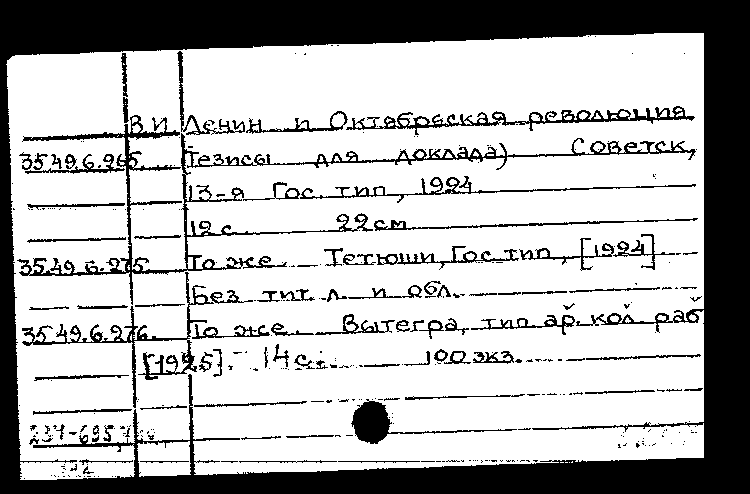 В.И. Ленин и Октябрьская революция
35.49.6.265. (Тезисы для доклада) Советск,
13-я Гос. тип., 1924.
12 с. 22 см
35.49.6.275. То же. Тетюши, Гос. тип., [1924].
Без тит. л. и обл.
35.49.6.276. То же. Вытегра, тип. ар. кол. раб.
[1925]. - 14 с. 100 экз.
237-695,